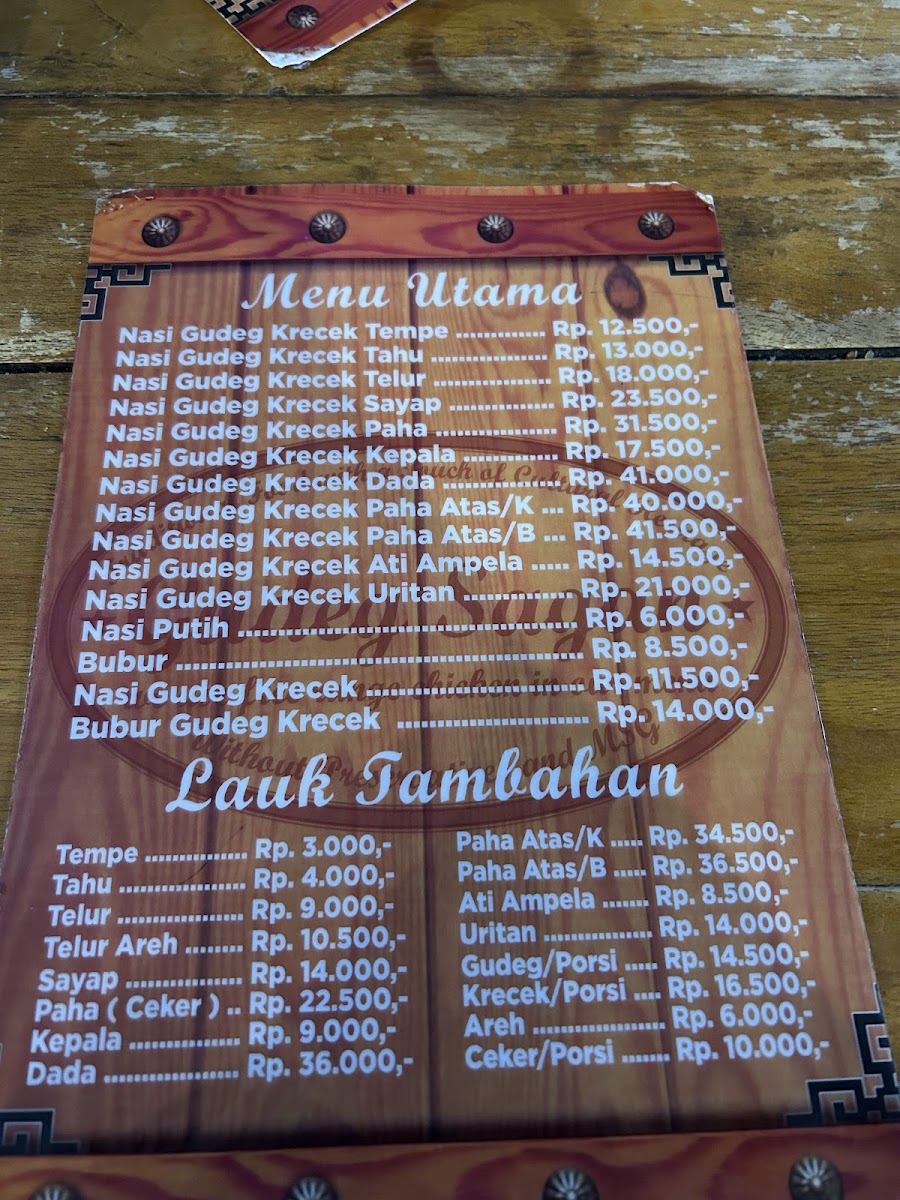 Menu Utama
Nasi Gudeg Krecek Tempe ............. Rp. 12.500,-
Nasi Gudeg Krecek Tahu ................. Rp. 13.000,-
Nasi Gudeg Krecek Telur ................. Rp. 18.000,-
Nasi Gudeg Krecek Sayap ............... Rp. 23.500,-
Nasi Gudeg Krecek Paha ................. Rp. 31.500,-
Nasi Gudeg Krecek Kepala ............. Rp. 17.500,-
Nasi Gudeg Krecek Dada ................ Rp. 41.000,-
Nasi Gudeg Krecek Paha Atas/K ... Rp. 40.000,-
Nasi Gudeg Krecek Paha Atas/B ... Rp. 41.500,-
Nasi Gudeg Krecek Ati Ampela ..... Rp. 14.500,-
Nasi Gudeg Krecek Uritan ............... Rp. 21.000,-
Nasi Putih ............................................ Rp. 6.000,-
Bubur .................................................. Rp. 8.500,-
Nasi Gudeg Krecek ........................... Rp. 11.500,-
Bubur Gudeg Krecek ........................ Rp. 14.000,-
Lauk Tambahan
Tempe ............... Rp. 3.000,-
Tahu ................... Rp. 4.000,-
Telur ................... Rp. 9.000,-
Telur Areh ........ Rp. 10.500,-
Sayap ................. Rp. 14.000,-
Paha ( Ceker ) .. Rp. 22.500,-
Kepala ................ Rp. 9.000,-
Dada .................... Rp. 36.000,-
Paha Atas/K ..... Rp. 34.500,-
Paha Atas/B ..... Rp. 36.500,-
Ati Ampela ....... Rp. 8.500,-
Uritan ................ Rp. 14.000,-
Gudeg/Porsi ..... Rp. 14.500,-
Krecek/Porsi .... Rp. 16.500,-
Areh .................... Rp. 6.000,-
Ceker/Porsi ....... Rp. 10.000,-